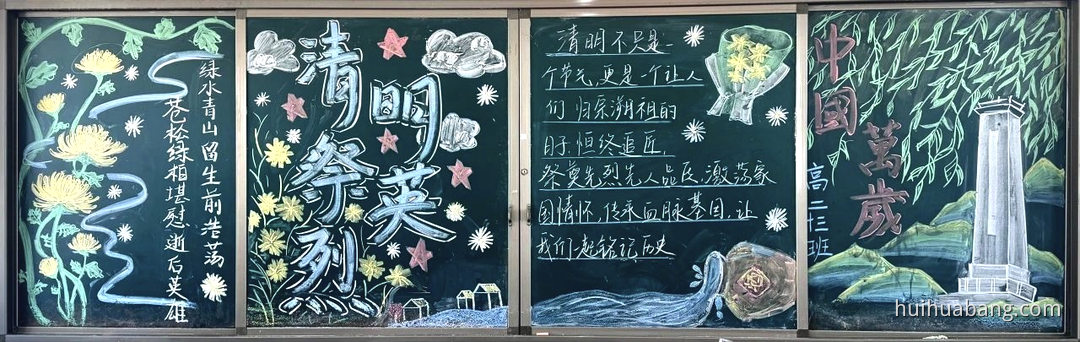 绿水青山留生前浩荡
苍松绿柏堪慰逝后英雄
清明
祭英烈
清明不只是一
个节气,更是一个让人
们归宗溯祖的
日子,终追
祭奠先烈先人,激荡家
国情怀,传承血脉基因,让
我们一起铭记历史
中國
萬歲
高二三班
huihuabang.com